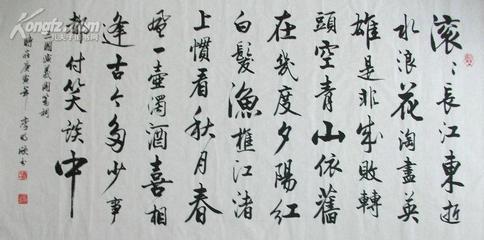 滚々長江東逝
水浪花淘盡英
雄是非成敗轉
頭空青山依舊
在幾度夕陽紅
白髮漁樵江渚
上慣看秋月春
風一壺濁酒喜相
逢古今多少事
都付笑談中
三國演義開篇詞
時在庚寅年 李書